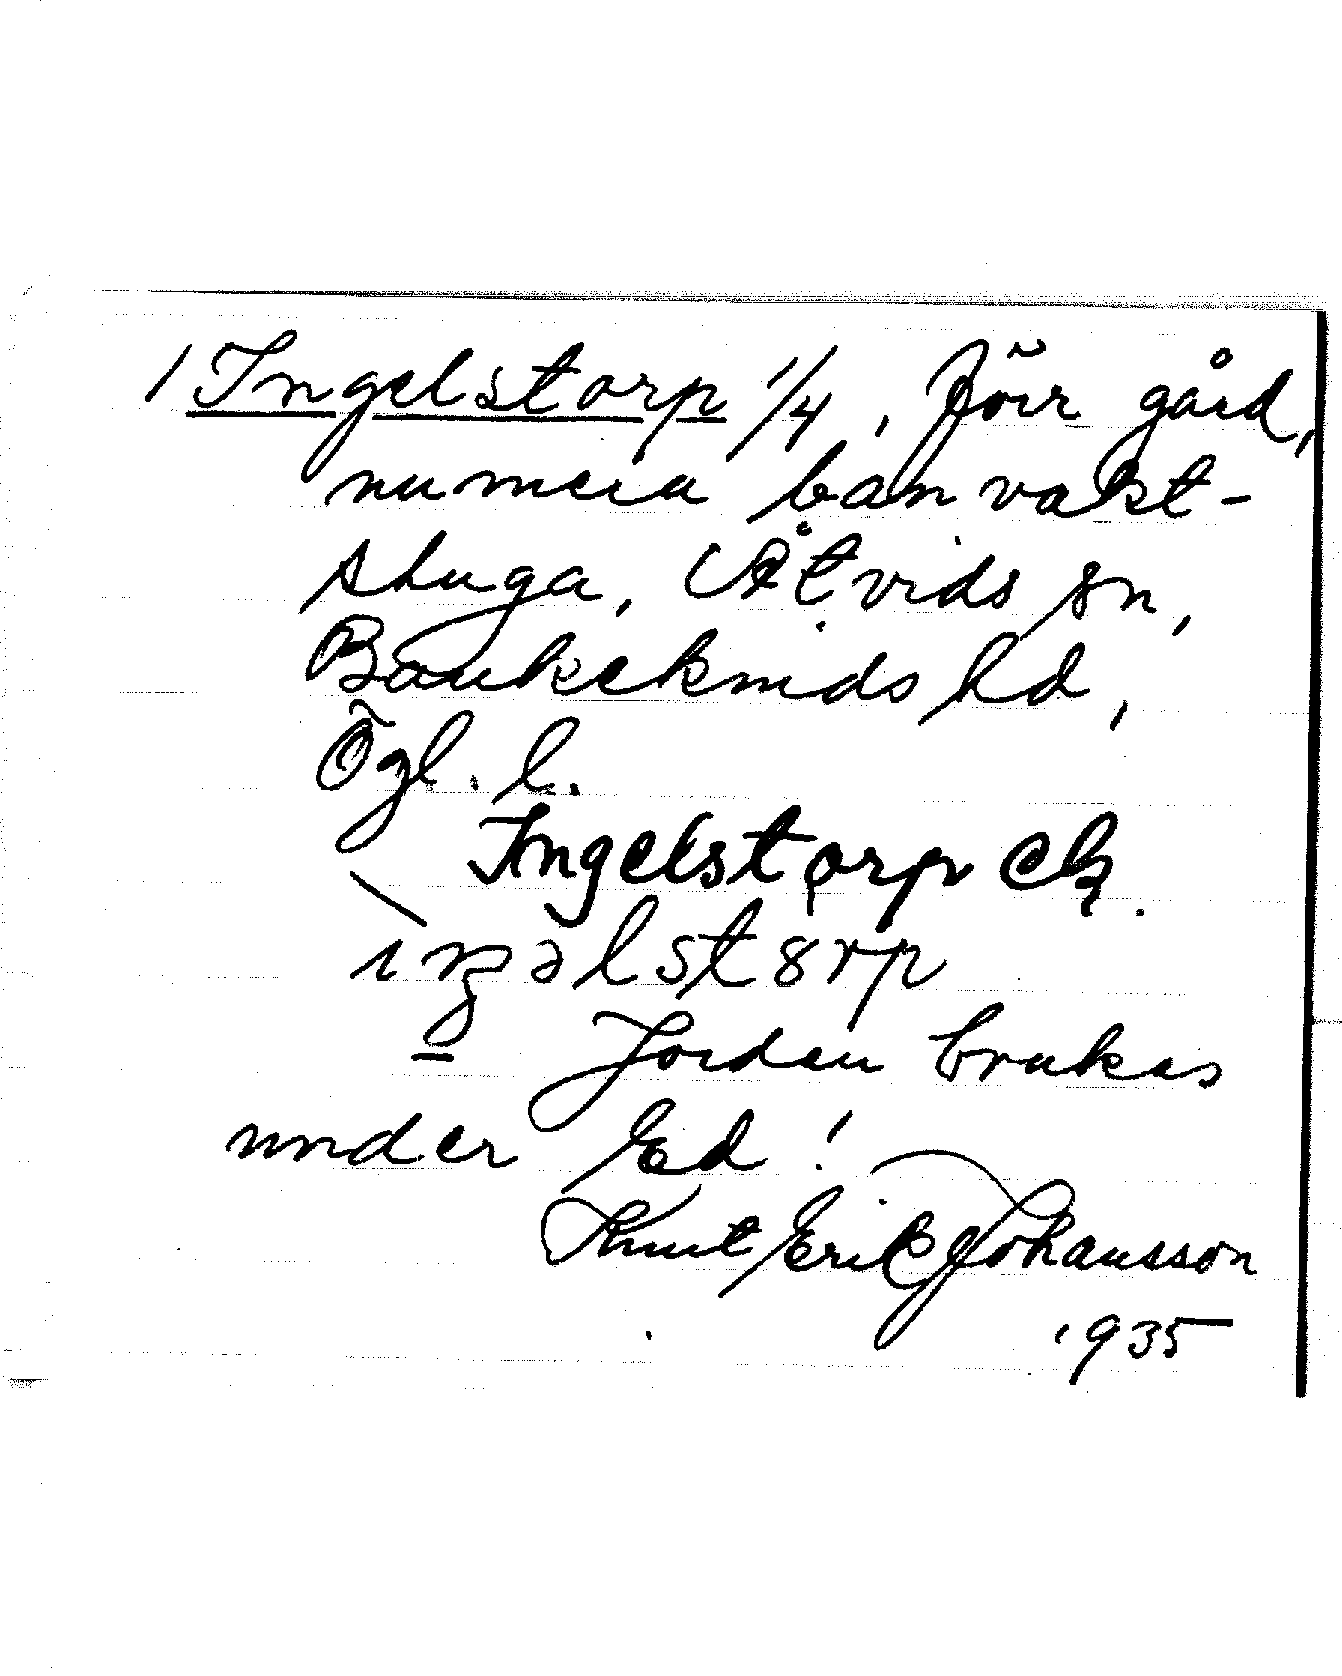 1 Ingelstorp 1/4, förr gård,
numera banvakt-
stuga, Åtvids sn,
Bankekinds hd,
Ögl. l.
Ingelstorp ek.
ìŋəlstɵrp
Jorden brukas
under Ed!
Knut Erik Johansson
1935